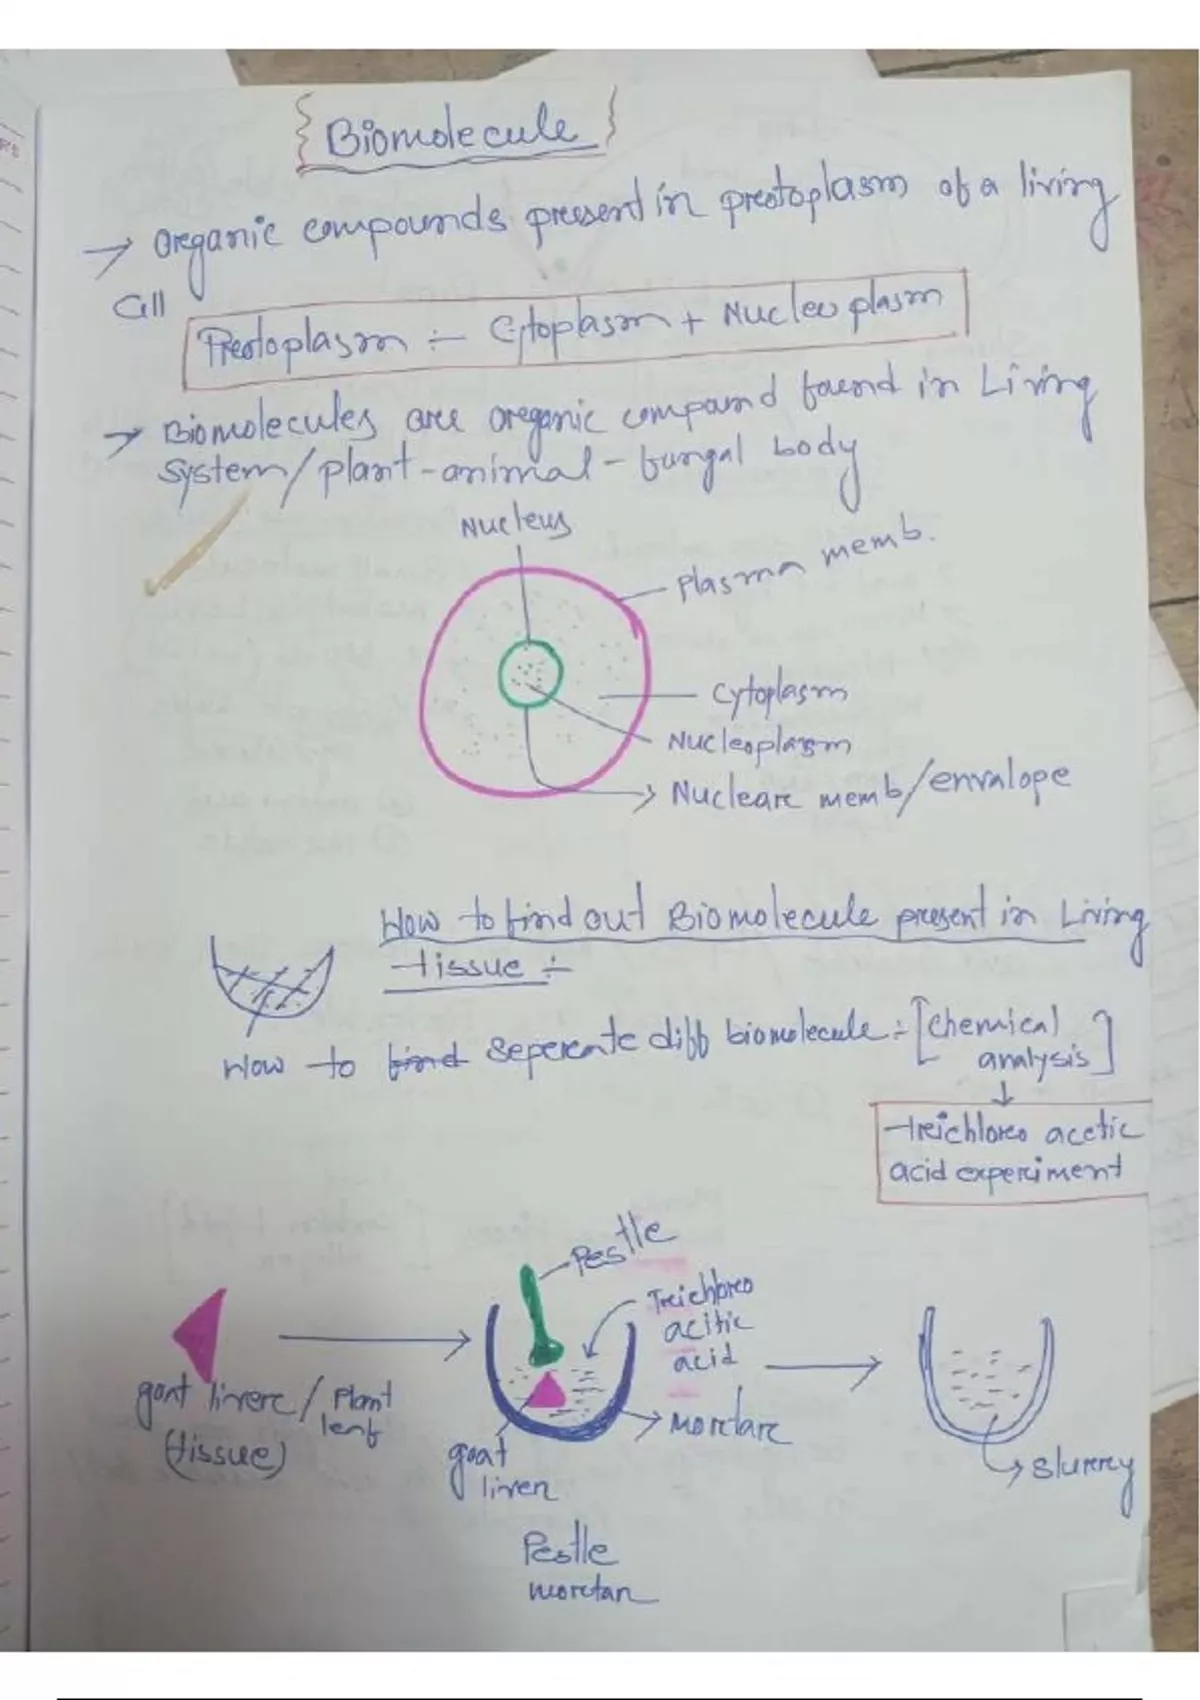 Biomolecule
→ Organic compounds present in protoplasm of a living
Cell
Protoplasm ÷ Cytoplasm + Nucleoplasm
→ Biomolecules are organic compound found in Living
System/plant-animal-fungal body
Nucleus
Plasma memb.
Cytoplasm
Nucleoplasm
Nuclear memb/envalope
How to find out Biomolecule present in Living
tissue ÷
How to find seperate diff biomolecule ÷ [Chemical
analysis]
↓
trichloro acetic
acid experiment
Pestle
Trichloro
acitic
acid
goat liver / Plant
leaf
(tissue)
Mortar
goat
liver
slurry
Pestle
mortar